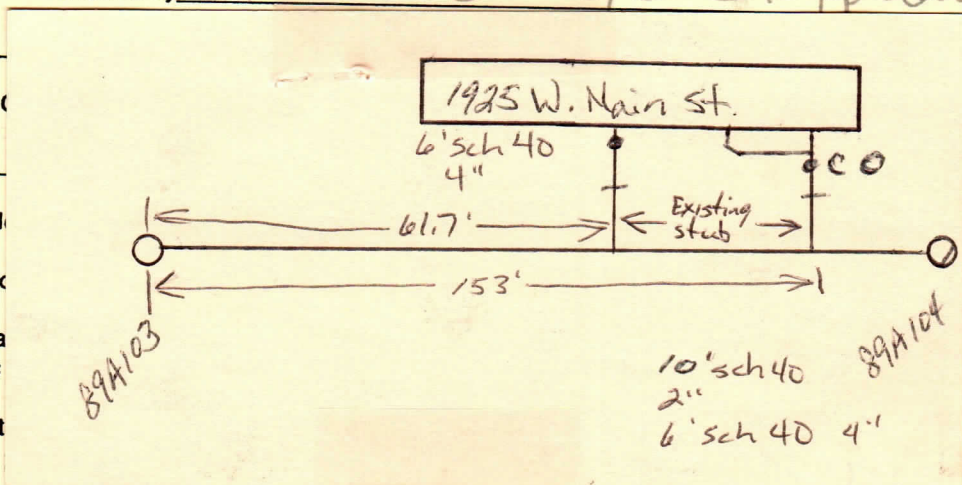 1925 W. Main St.
6' sch 40
4"
C O
Existing
stub
61.7'
153'
89A103
89A104
10' sch 40
2"
6' sch 40 4"